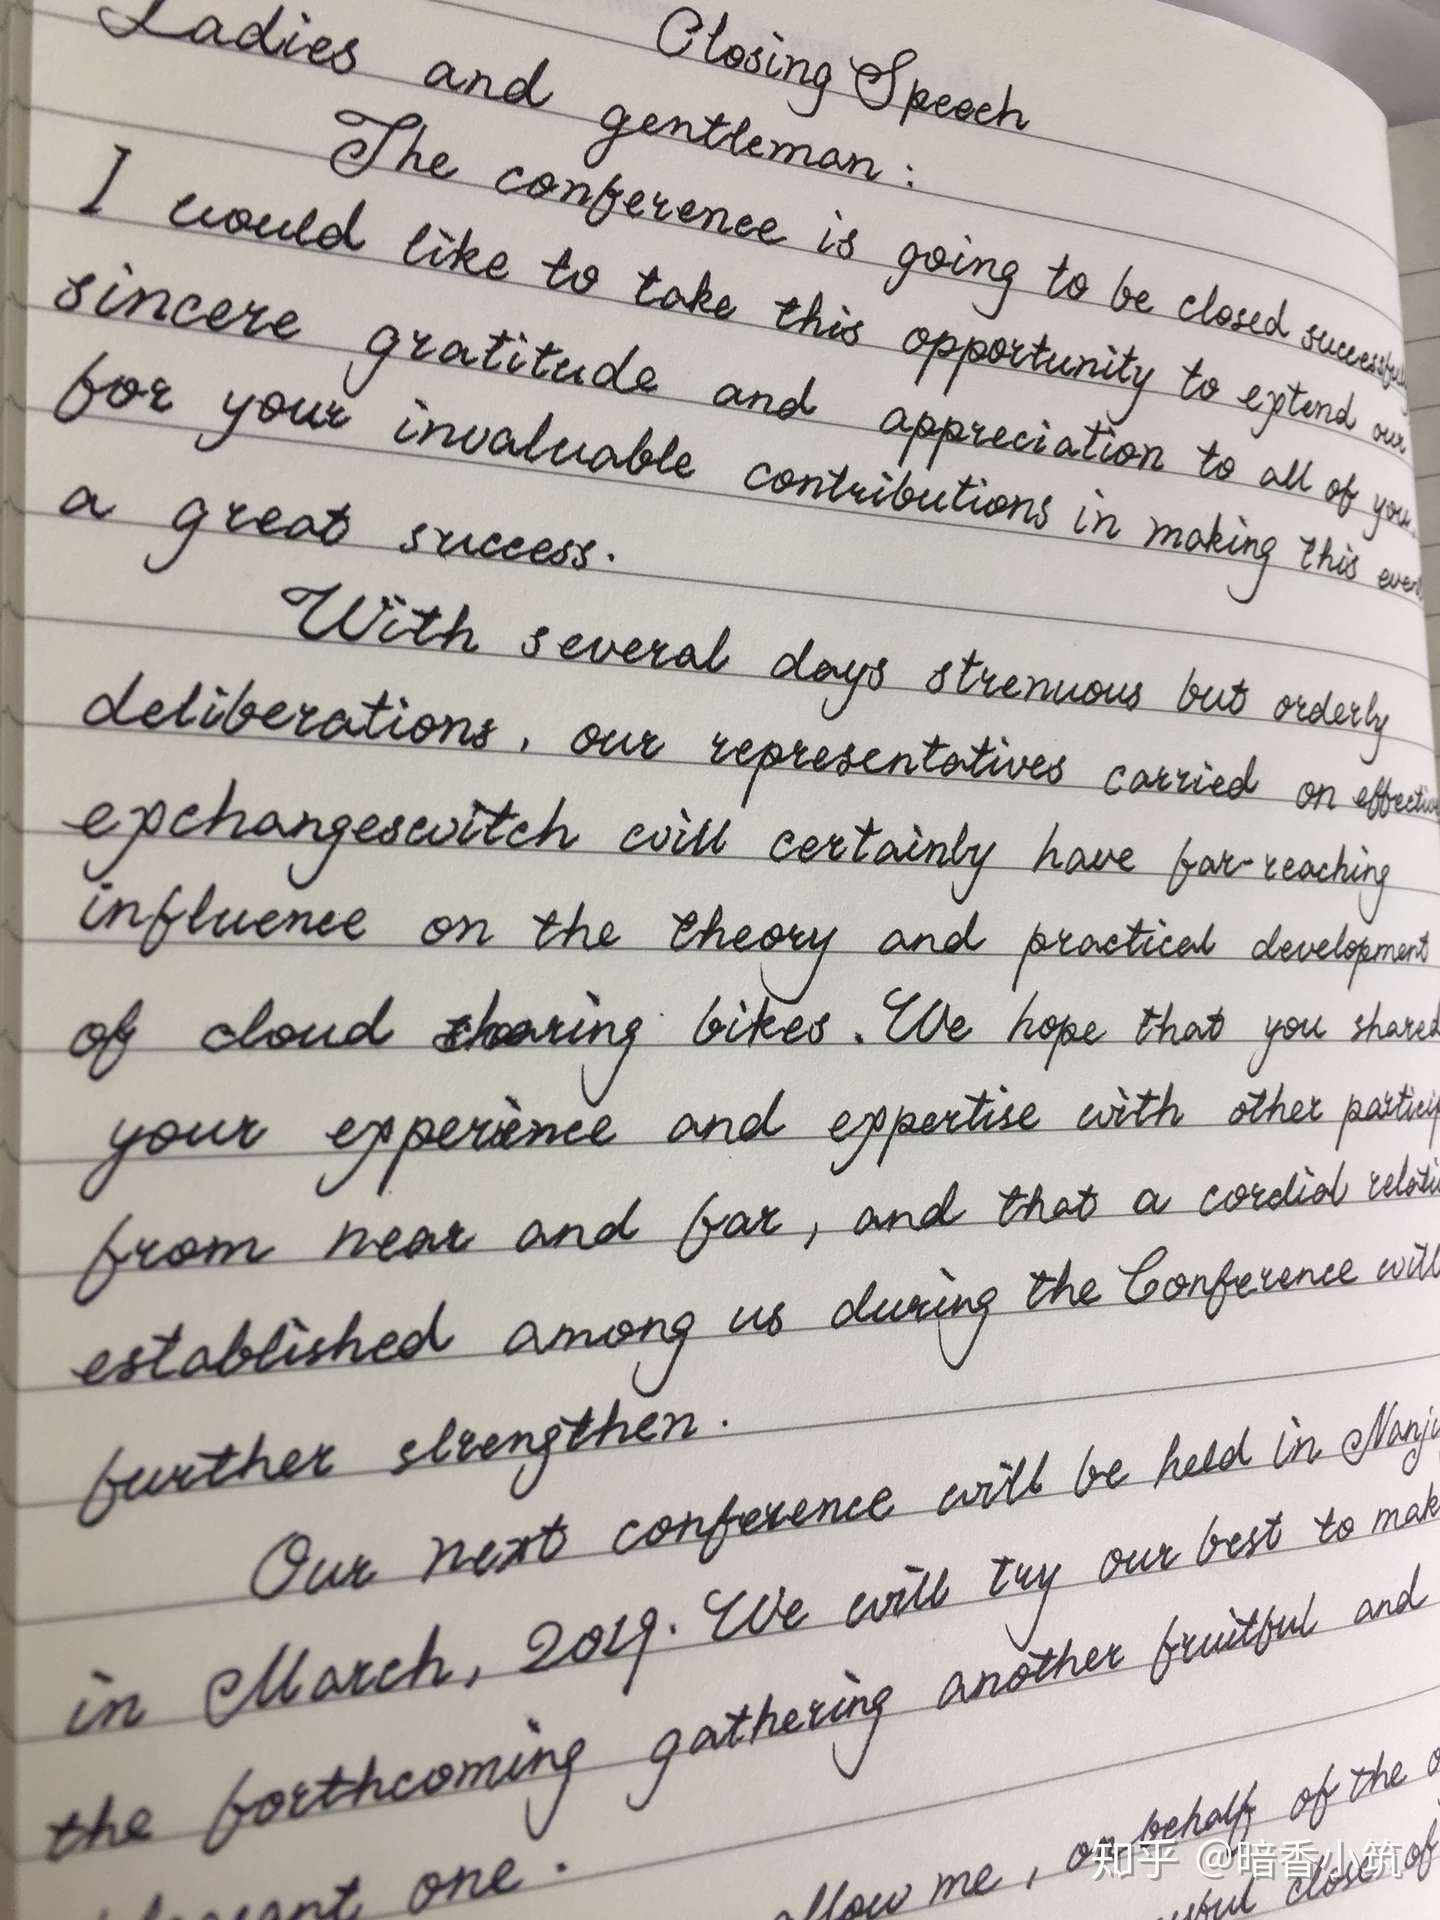 Closing Speech
Ladies and gentleman:
The conference is going to be closed
I would like to take this opportunity to extend our
sincere gratitude and appreciation to all of you
for your invaluable contributions in making this
a great success.
With several days strenuous but orderly
deliberations, our representatives carried on
exchangeswitch will certainly have far-reaching
influence on the theory and practical development
of cloud sharing bikes. We hope that you shared
your experience and expertise with other
from near and far, and that a cordial
established among us during the Conference will
further strengthen.
Our next conference will be held in
in March, 2019. We will try our best to
the forthcoming gathering another fruitful and
one.
allow me, on behalf of the
close of
知乎 @暗香小筑